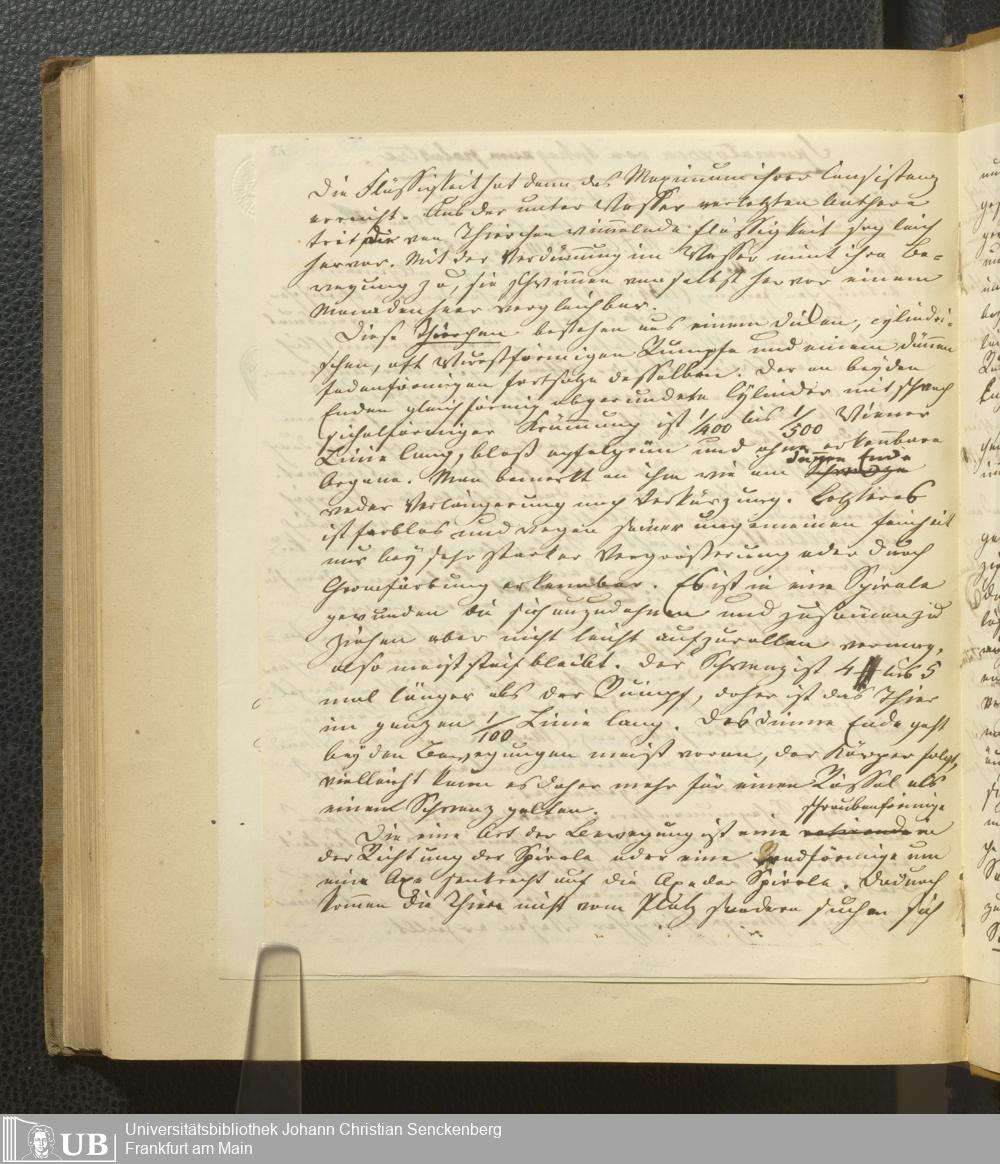 Die Flüssigkeit hat dann das Maximum ihrer Consistenz
erreicht. Aus der unter Wasser verletzten Anthere
trit die von Thierchen wimmelnde Flüssigkeit sogleich
hervor. Mit der Verdünnung im Wasser nimt ihre Be-
wegung zu, sie schwimmen von selbst hervor einem
Monadenheer vergleichbar.
Diese Thierchen bestehen aus einem dicken, cylindri-
schen, oft wurstförmigen Rumpfe und einem dünnen
fadenförmigen Fortsatze desselben. Der an beyden
Enden gleichförmig abgerundete Cylinder mit schwach
sichelförmiger Krümmung ist 1/400 bis 1/500 Wiener
Linie lang, blaß apfelgrün und ohne erkennbare
dünnen Ende
Organe. Man bemerkt an ihm wie am Schwanze
weder Verlängerung noch Verkürzung. Letzteres
ist farblos und wegen seiner ungemeinen Feinheit
nur bey sehr starker Vergrösserung oder durch
erkennbar. Es ist in eine Spirale
gewunden die sich auszudehnen und zusammenzu
ziehen aber nicht leicht aufzurollen vermag,
also meist steif bleibt. Der Schwanz ist 4 bis 5
mal länger als der Rumpf, daher ist das Thier
im ganzen 1/100 Linie lang. Das dünne Ende geht
bey den Bewegungen meist voran, der Körper folgt,
vielleicht kann es daher mehr für einen Rüssel als
einen Schwanz gelten.
schraubenförmige
Die eine Art der Bewegung ist eine rotirende in
der Richtung der Spirale oder eine radförmige um
eine Axe senkrecht auf die Axe der Spirale. Dadurch
kommen die Thiere nicht vom Platz sondern suchen sich
UB
Universitätsbibliothek Johann Christian Senckenberg
Frankfurt am Main